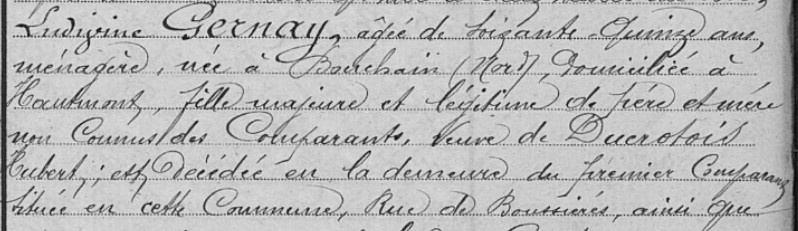 Ludivine Gernay, âgée de soixante-quinze ans,
ménagère, née à Bouchain (Nord), domiciliée à
Hautmont, fille majeure et légitime de père et mère
non connus des Comparants, veuve de Ducrotois
Hubert; est décédée en la demeure du premier Comparant
située en cette Commune, Rue de Boussières, ainsi que